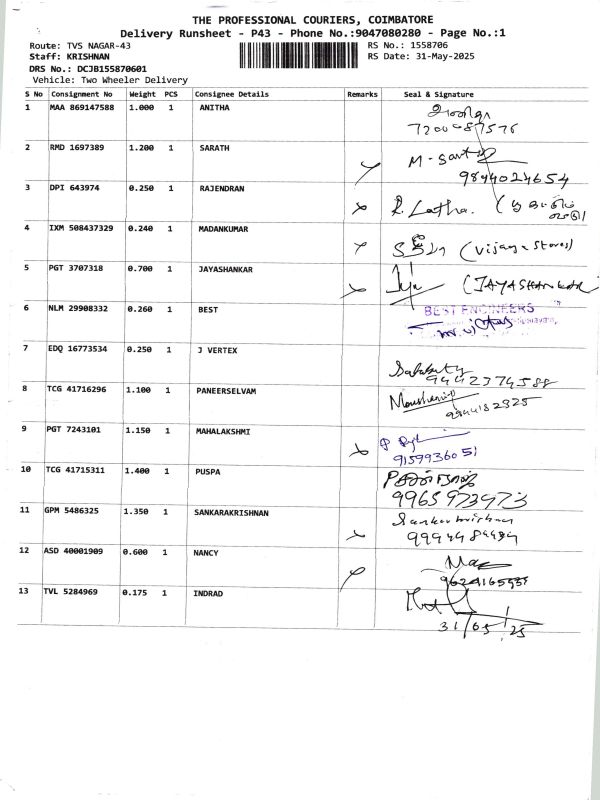 THE PROFESSIONAL COURIERS, COIMBATORE
Delivery Runsheet - P43 - Phone No.:9047080280 - Page No.:1
Route: TVS NAGAR-43 RS No.: 1558706
Staff: KRISHNAN RS Date: 31-May-2025
DRS No.: DCJB155870601
Vehicle: Two Wheeler Delivery
S No Consignment No Weight PCS Consignee Details Remarks Seal & Signature
1 MAA 869147588 1.000 1 ANITHA
7200087576
2 RMD 1697389 1.200 1 SARATH
9844024654
3 DPI 643974 0.250 1 RAJENDRAN R. Latha.
4 IXM 508437329 0.240 1 MADANKUMAR (Vijaya Stores)
5 PGT 3707318 0.700 1 JAYASHANKAR (JAYASHANKAR
6 NLM 29908332 0.260 1 BEST BEST ENGINEERS
7 EDQ 16773534 0.250 1 J VERTEX
9442374588
8 TCG 41716296 1.100 1 PANEERSELVAM
9944182925
9 PGT 7243101 1.150 1 MAHALAKSHMI
9159936051
10 TCG 41715311 1.400 1 PUSPA
9965973473
11 GPM 5486325 1.350 1 SANKARAKRISHNAN Sankarakrishnan
12 ASD 40001909 0.600 1 NANCY
13 TVL 5284969 0.175 1 INDRAD
31/05/25